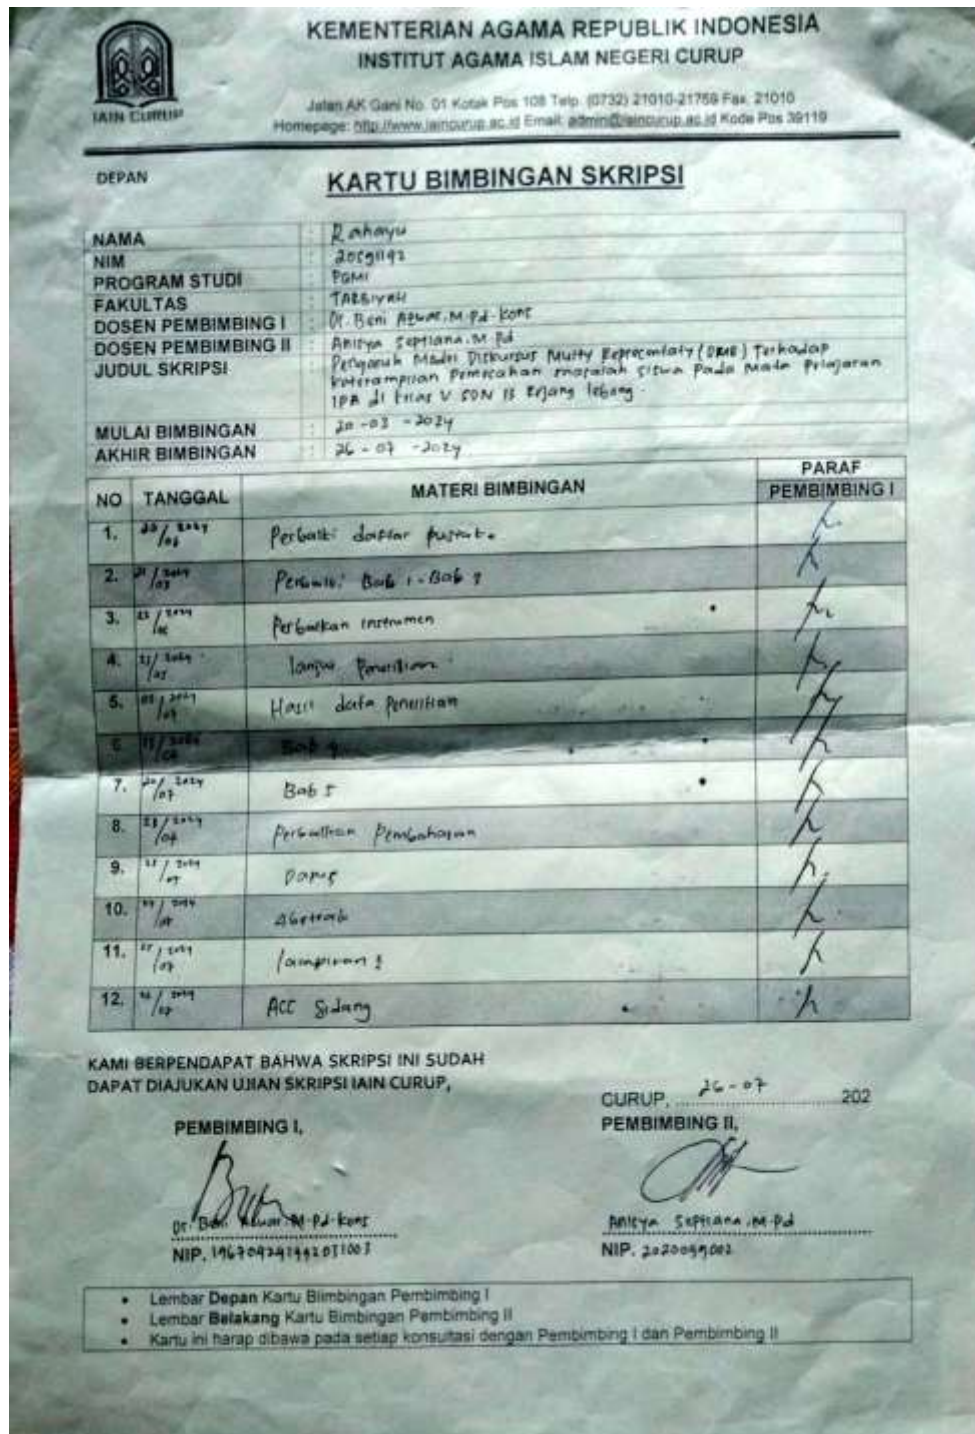 KEMENTERIAN AGAMA REPUBLIK INDONESIA
INSTITUT AGAMA ISLAM NEGERI CURUP
IAIN CURUP
Jalan AK Gani No. 01 Kotak Pos 108 Telp. (0732) 21010-21759 Fax. 21010
Homepage: http://www.iaincurup.ac.id Email: admin@iaincurup.ac.id Kode Pos 39119
DEPAN
KARTU BIMBINGAN SKRIPSI
NAMA : Rahayu
NIM : 20591192
PROGRAM STUDI : PGMI
FAKULTAS : TARBIYAH
DOSEN PEMBIMBING I : Dr. Beni Azwar, M.Pd. Kons
DOSEN PEMBIMBING II : Anisya Septiana, M.Pd
JUDUL SKRIPSI : Pengaruh Model Diskursus Multy (DMR) Terhadap
keterampilan Pemecahan masalah siswa Pada Mata Pelajaran
IPA di kelas V SDN 13 Rejang lebong.
MULAI BIMBINGAN : 20-03-2024
AKHIR BIMBINGAN : 26-07-2024
NO TANGGAL MATERI BIMBINGAN PARAF
PEMBIMBING I
1. Perbaiki daftar pustaka
2. Bab 1 - Bab
3. Perbaikan instrumen
4. lanjut Penelitian
5. Hasil data Penelitian
6. Bab 4
7. 20/07 2024 Bab 5
8. Perbaikan Pembahasan
9.
10. Abstrak
11. lampiran 2
12. ACC Sidang
KAMI BERPENDAPAT BAHWA SKRIPSI INI SUDAH
DAPAT DIAJUKAN UJIAN SKRIPSI IAIN CURUP,
CURUP, 26-07 202
PEMBIMBING I, PEMBIMBING II,
Dr. Beni Azwar M.Pd. Kons Anisya Septiana, M.Pd
NIP. NIP.
• Lembar Depan Kartu Biimbingan Pembimbing I
• Lembar Belakang Kartu Bimbingan Pembimbing II
• Kartu ini harap dibawa pada setiap konsultasi dengan Pembimbing I dan Pembimbing II